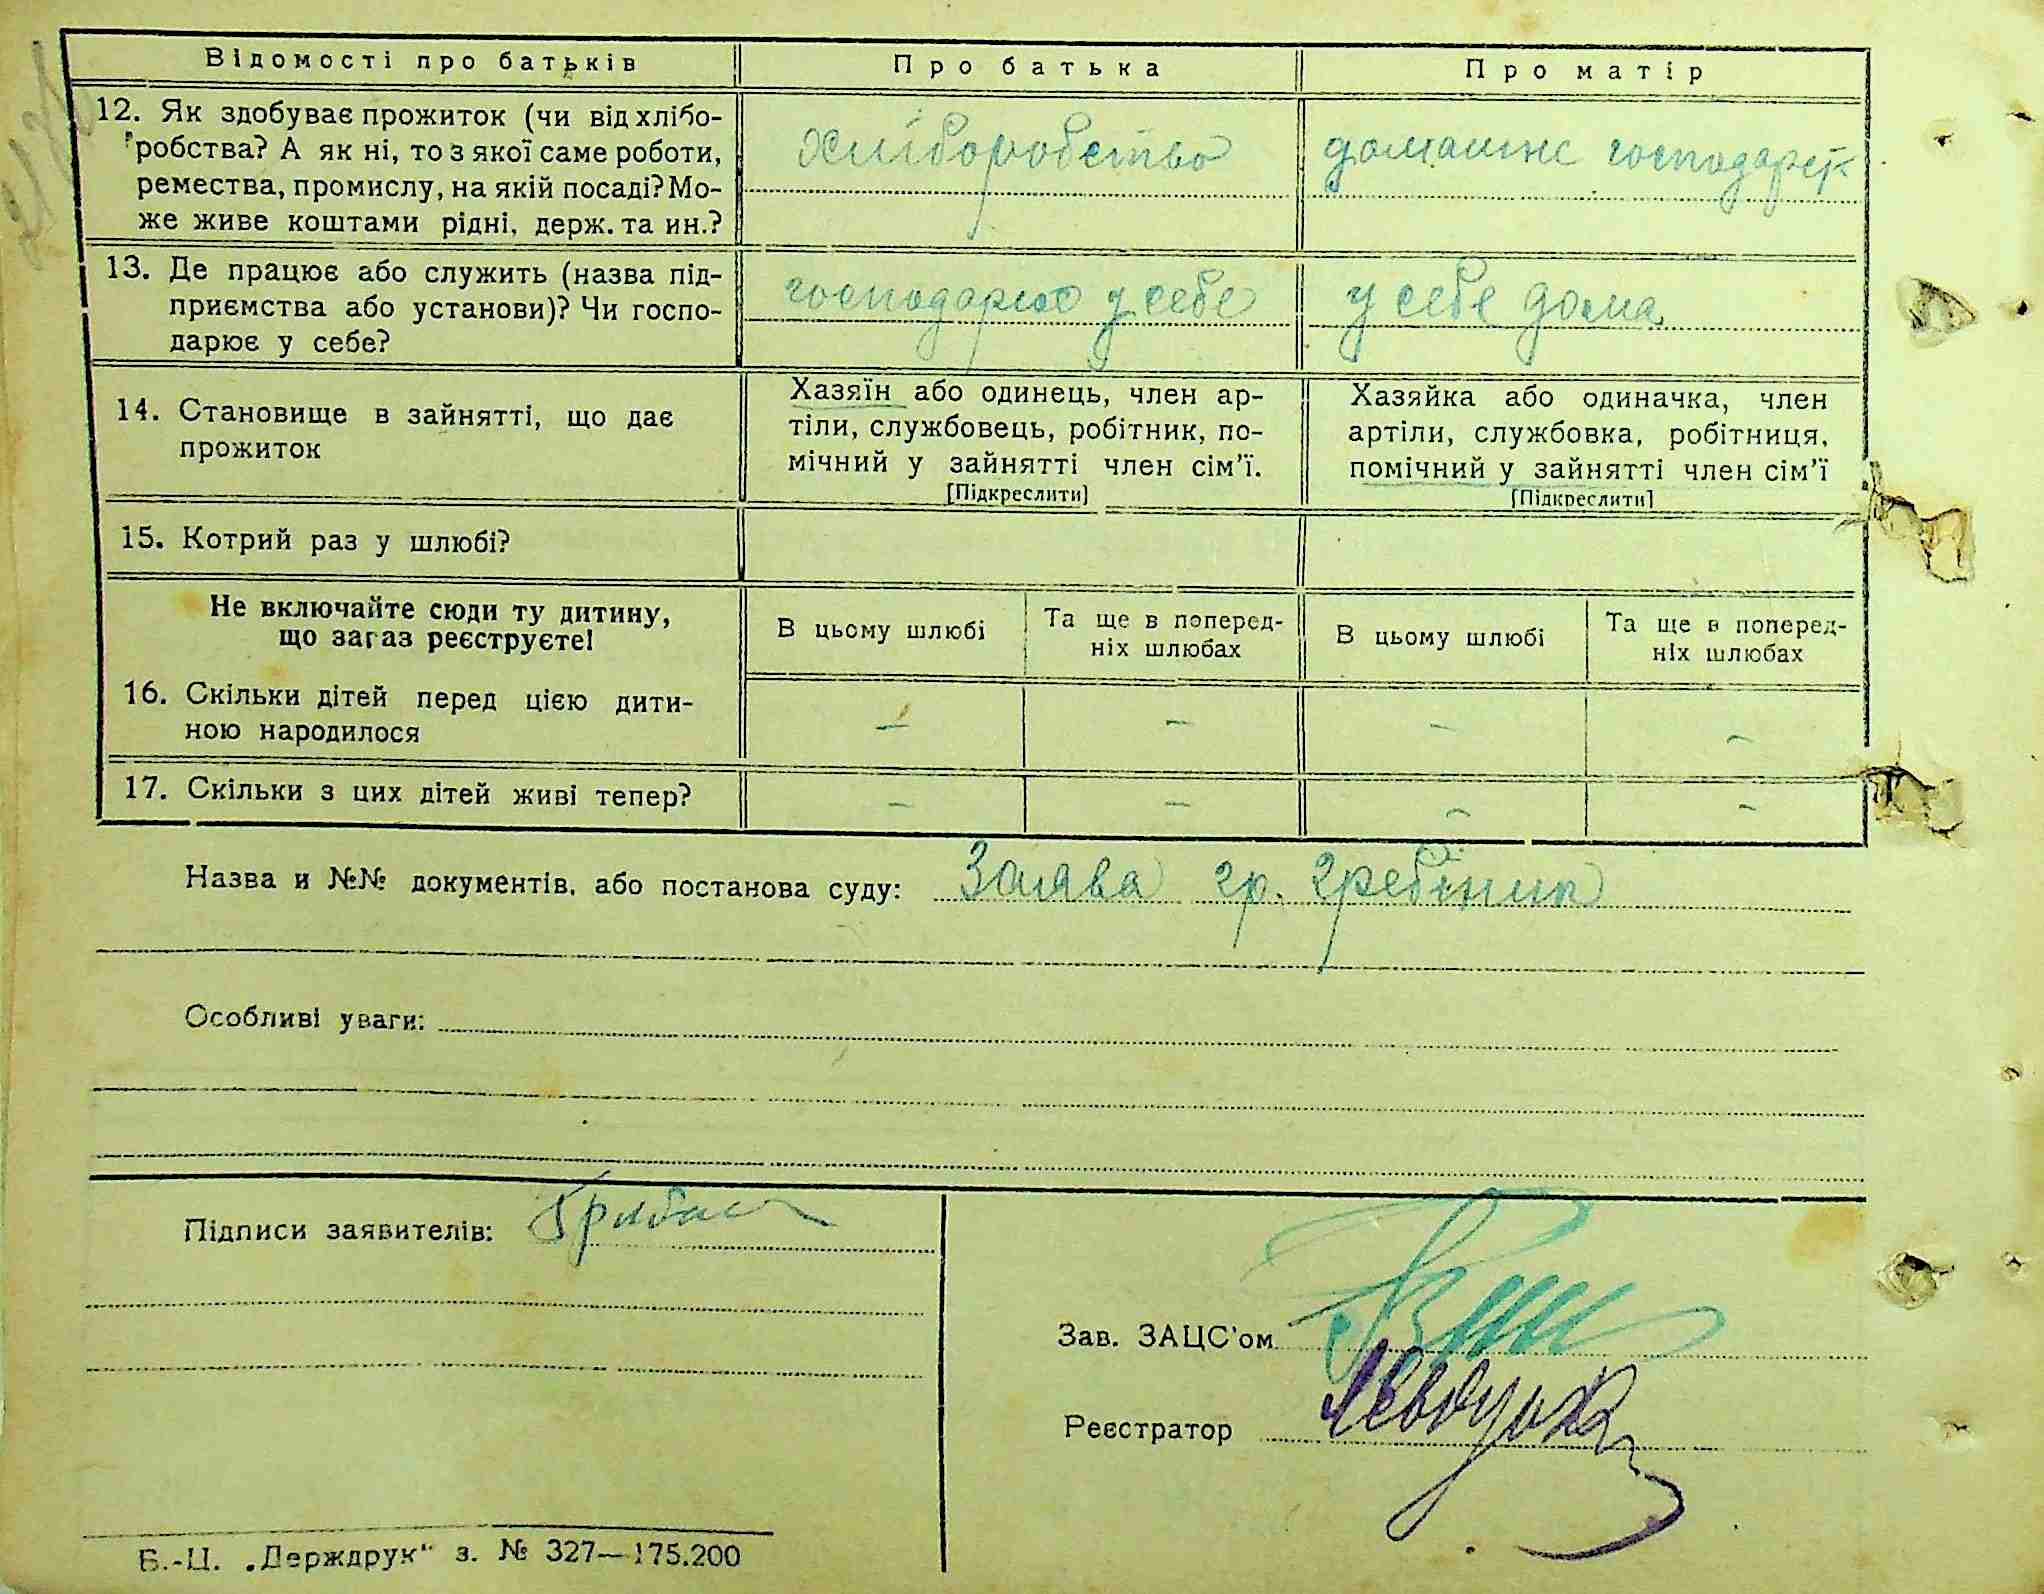 Відомості про батьків Про батька Про матір
12. Як здобуває прожиток (чи від хлібо-
робства? А як ні, то з якої саме роботи,
ремества, промислу, на якій посаді? Мо-
же живе коштами рідні, держ. та ин.?
хліборобство
домашнє господарств
13. Де працює або служить (назва під-
приємства або установи)? Чи госпо-
дарює у себе?
господарює у себе
у себе дома
14. Становище в зайнятті, що дає
прожиток
Хазяїн або одинець, член ар-
тіли, службовець, робітник, по-
мічний у зайнятті член сім'ї.
[Підкреслити]
Хазяйка або одиначка, член
артіли, службовка, робітниця,
помічний у зайнятті член сім'ї
[Підкреслити]
15. Котрий раз у шлюбі?
Не включайте сюди ту дитину,
що зараз реєструєте!
В цьому шлюбі
Та ще в поперед-
ніх шлюбах
В цьому шлюбі
Та ще в поперед-
ніх шлюбах
16. Скільки дітей перед цією дити-
ною народилося
– – – –
17. Скільки з цих дітей живі тепер?
– – – –
Назва и №№ документів, або постанова суду: Заява гр.
Особливі уваги:
Підписи заявителів:
Зав. ЗАЦС'ом
Реєстратор
Б.-Ц. „Держдрук" з. № 327—175.200